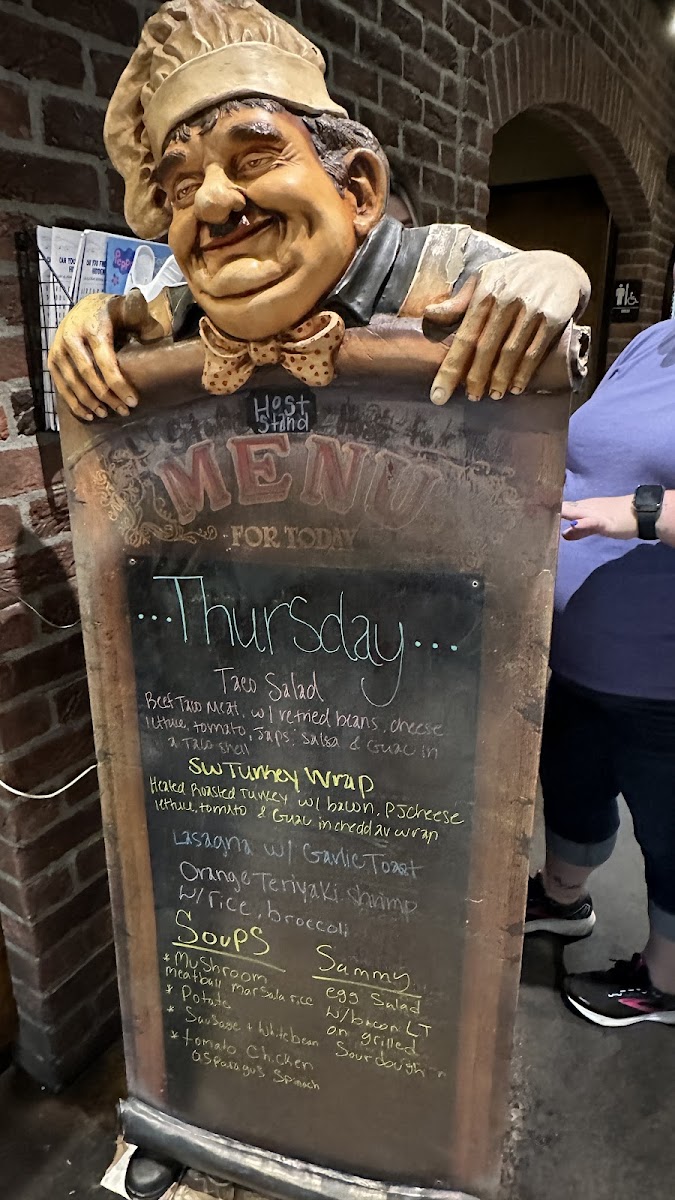 Host
Stand
MENU
FOR TODAY
...Thursday...
Taco Salad
Beef Taco Meat, w/ refried beans, cheese
lettuce, tomato, Japs, Salsa & Guac in
a Taco shell
SW Turkey Wrap
Heated Roasted Turkey w/ bacon, PJ cheese
lettuce, tomato & Guac in cheddar wrap
Lasagna w/ Garlic Toast
Orange Teriyaki shrimp
w/ rice, broccoli
Soups
* Mushroom
meatball marsala rice
* Potato
* Sausage + White bean
* tomato chicken
asparagus spinach
Sammy
egg Salad
w/ bacon LT
on grilled
Sourdough